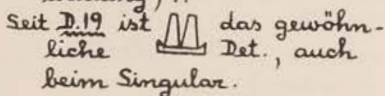 Seit D.19 ist das gewöhn-
liche Det., auch
beim Singular.